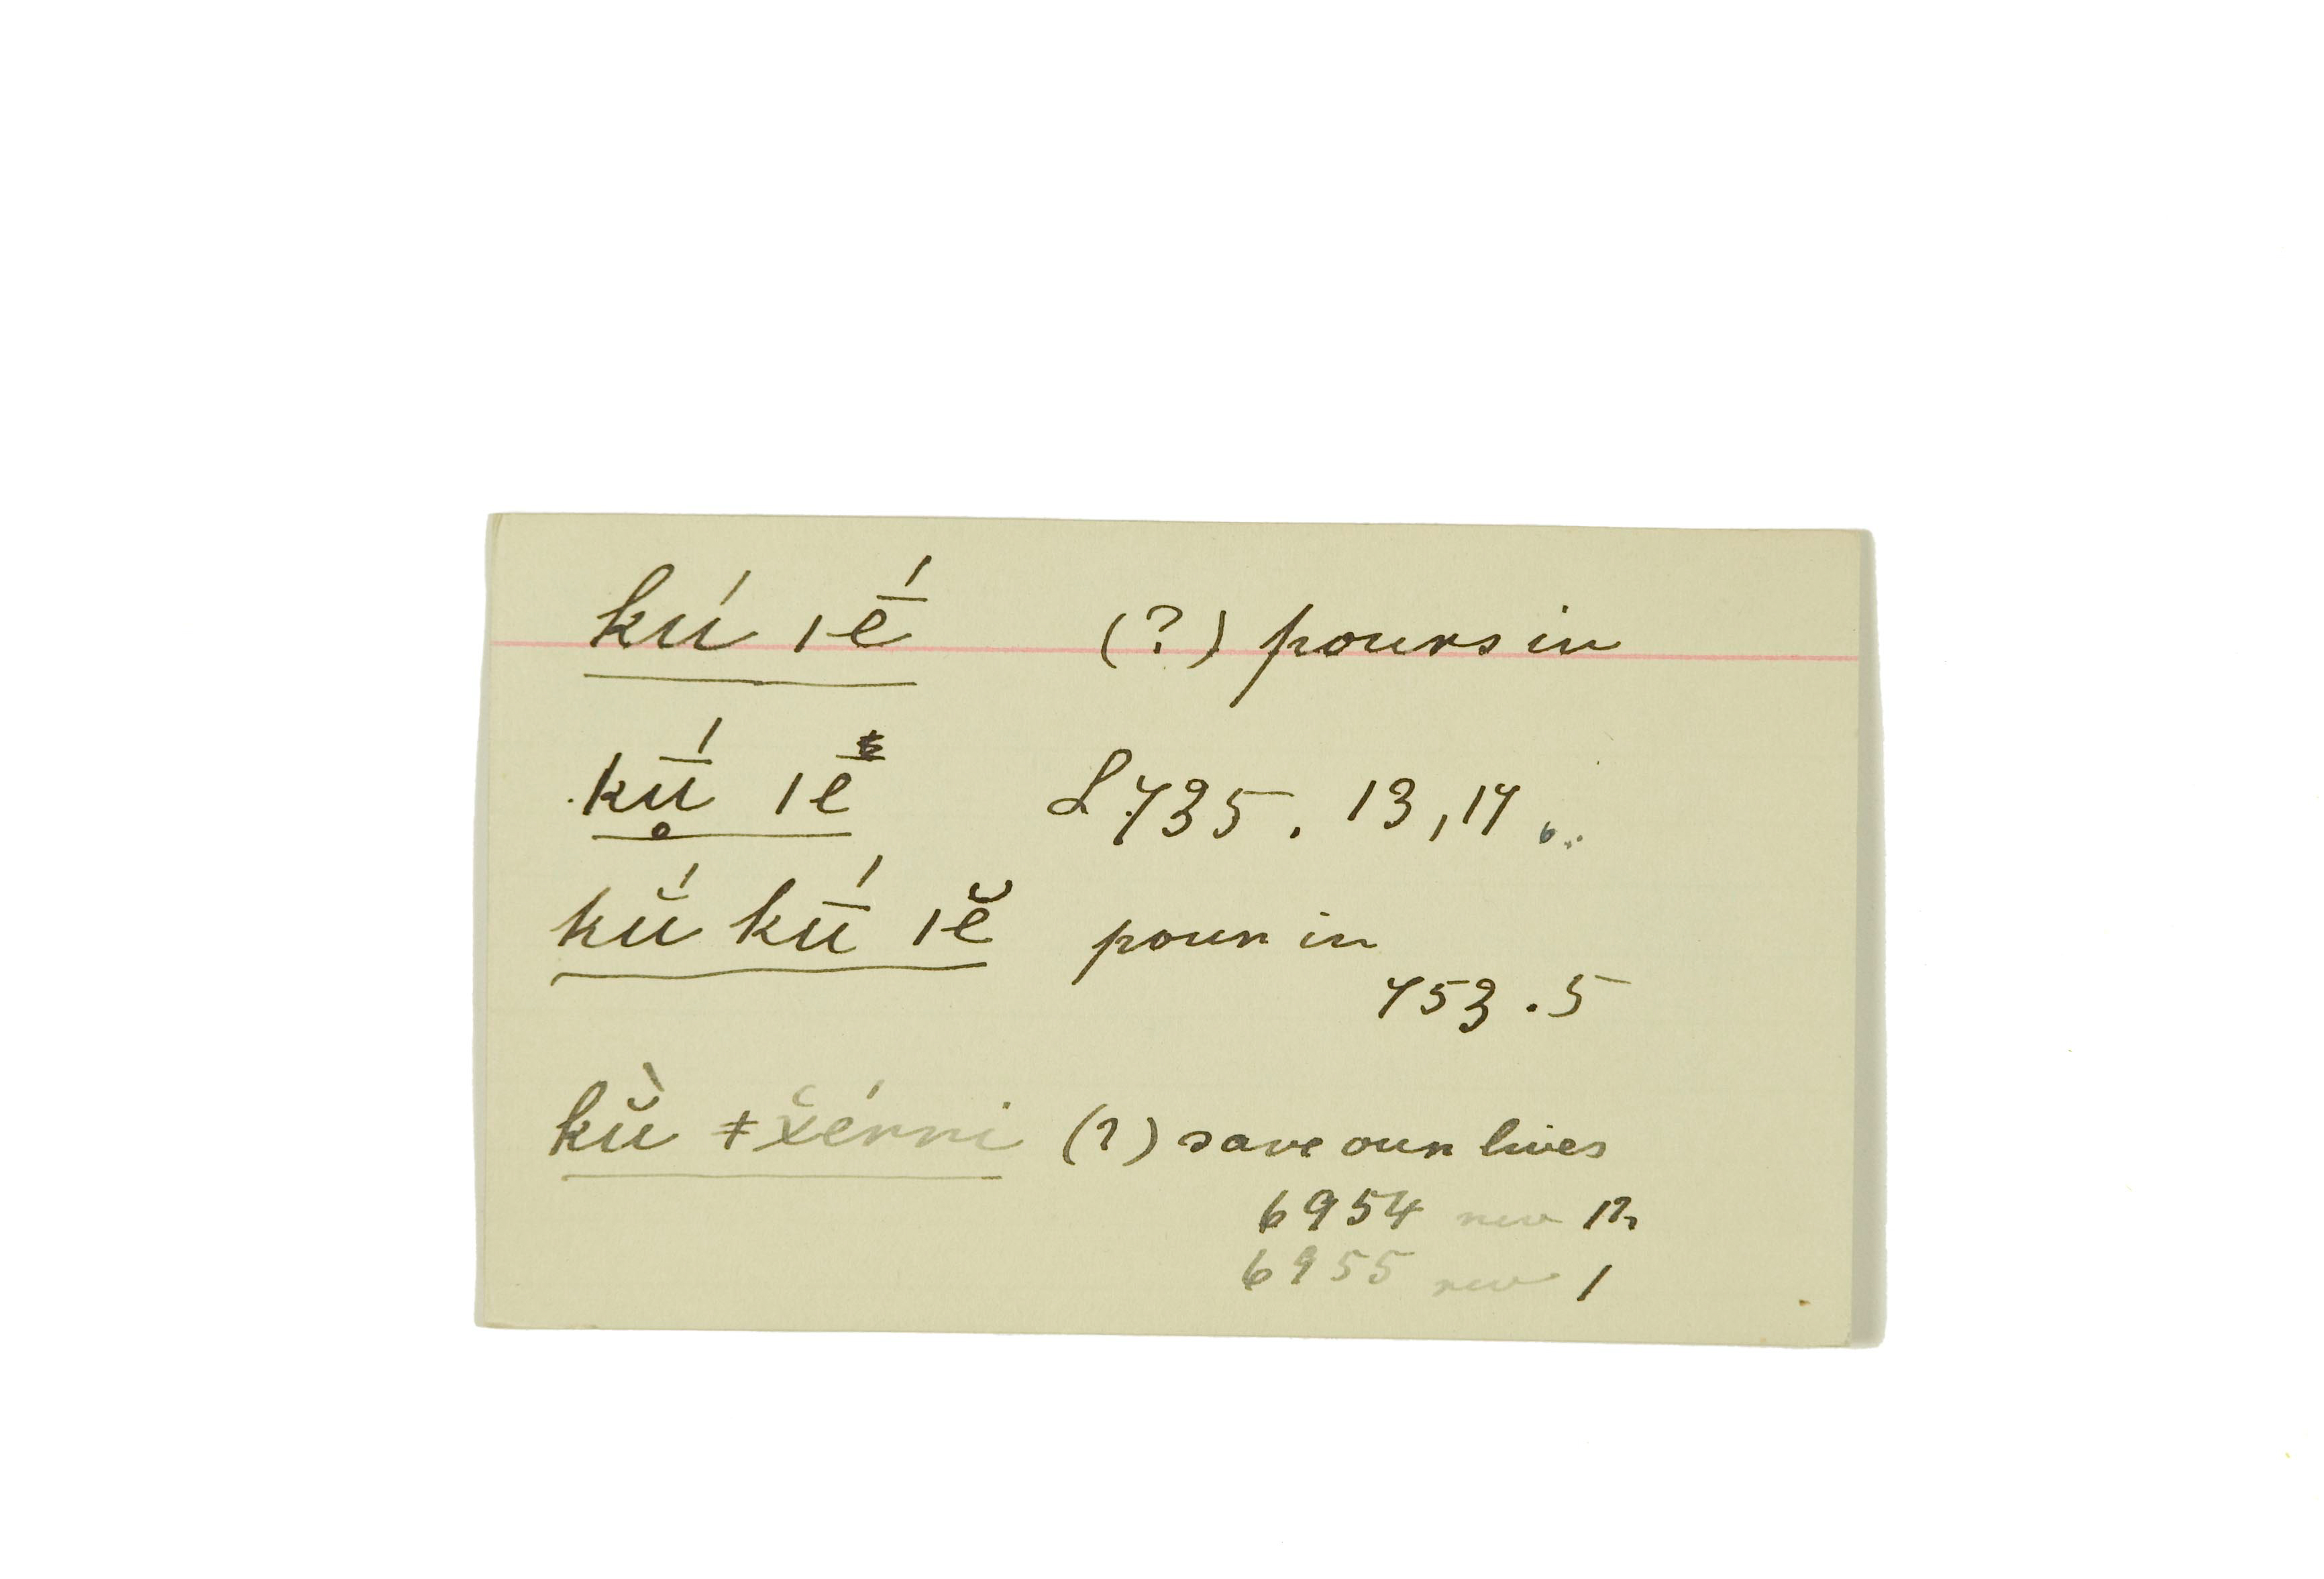 kú ǀḗ (?) pours in
kū̥́ ǀē L 735. 13, 14
kŭ́ kū́ ǀĕ pour in
453. 5
kŭ̀ ǂx̆énni (?) save our lives
6954 rev 12
6955 rev 1